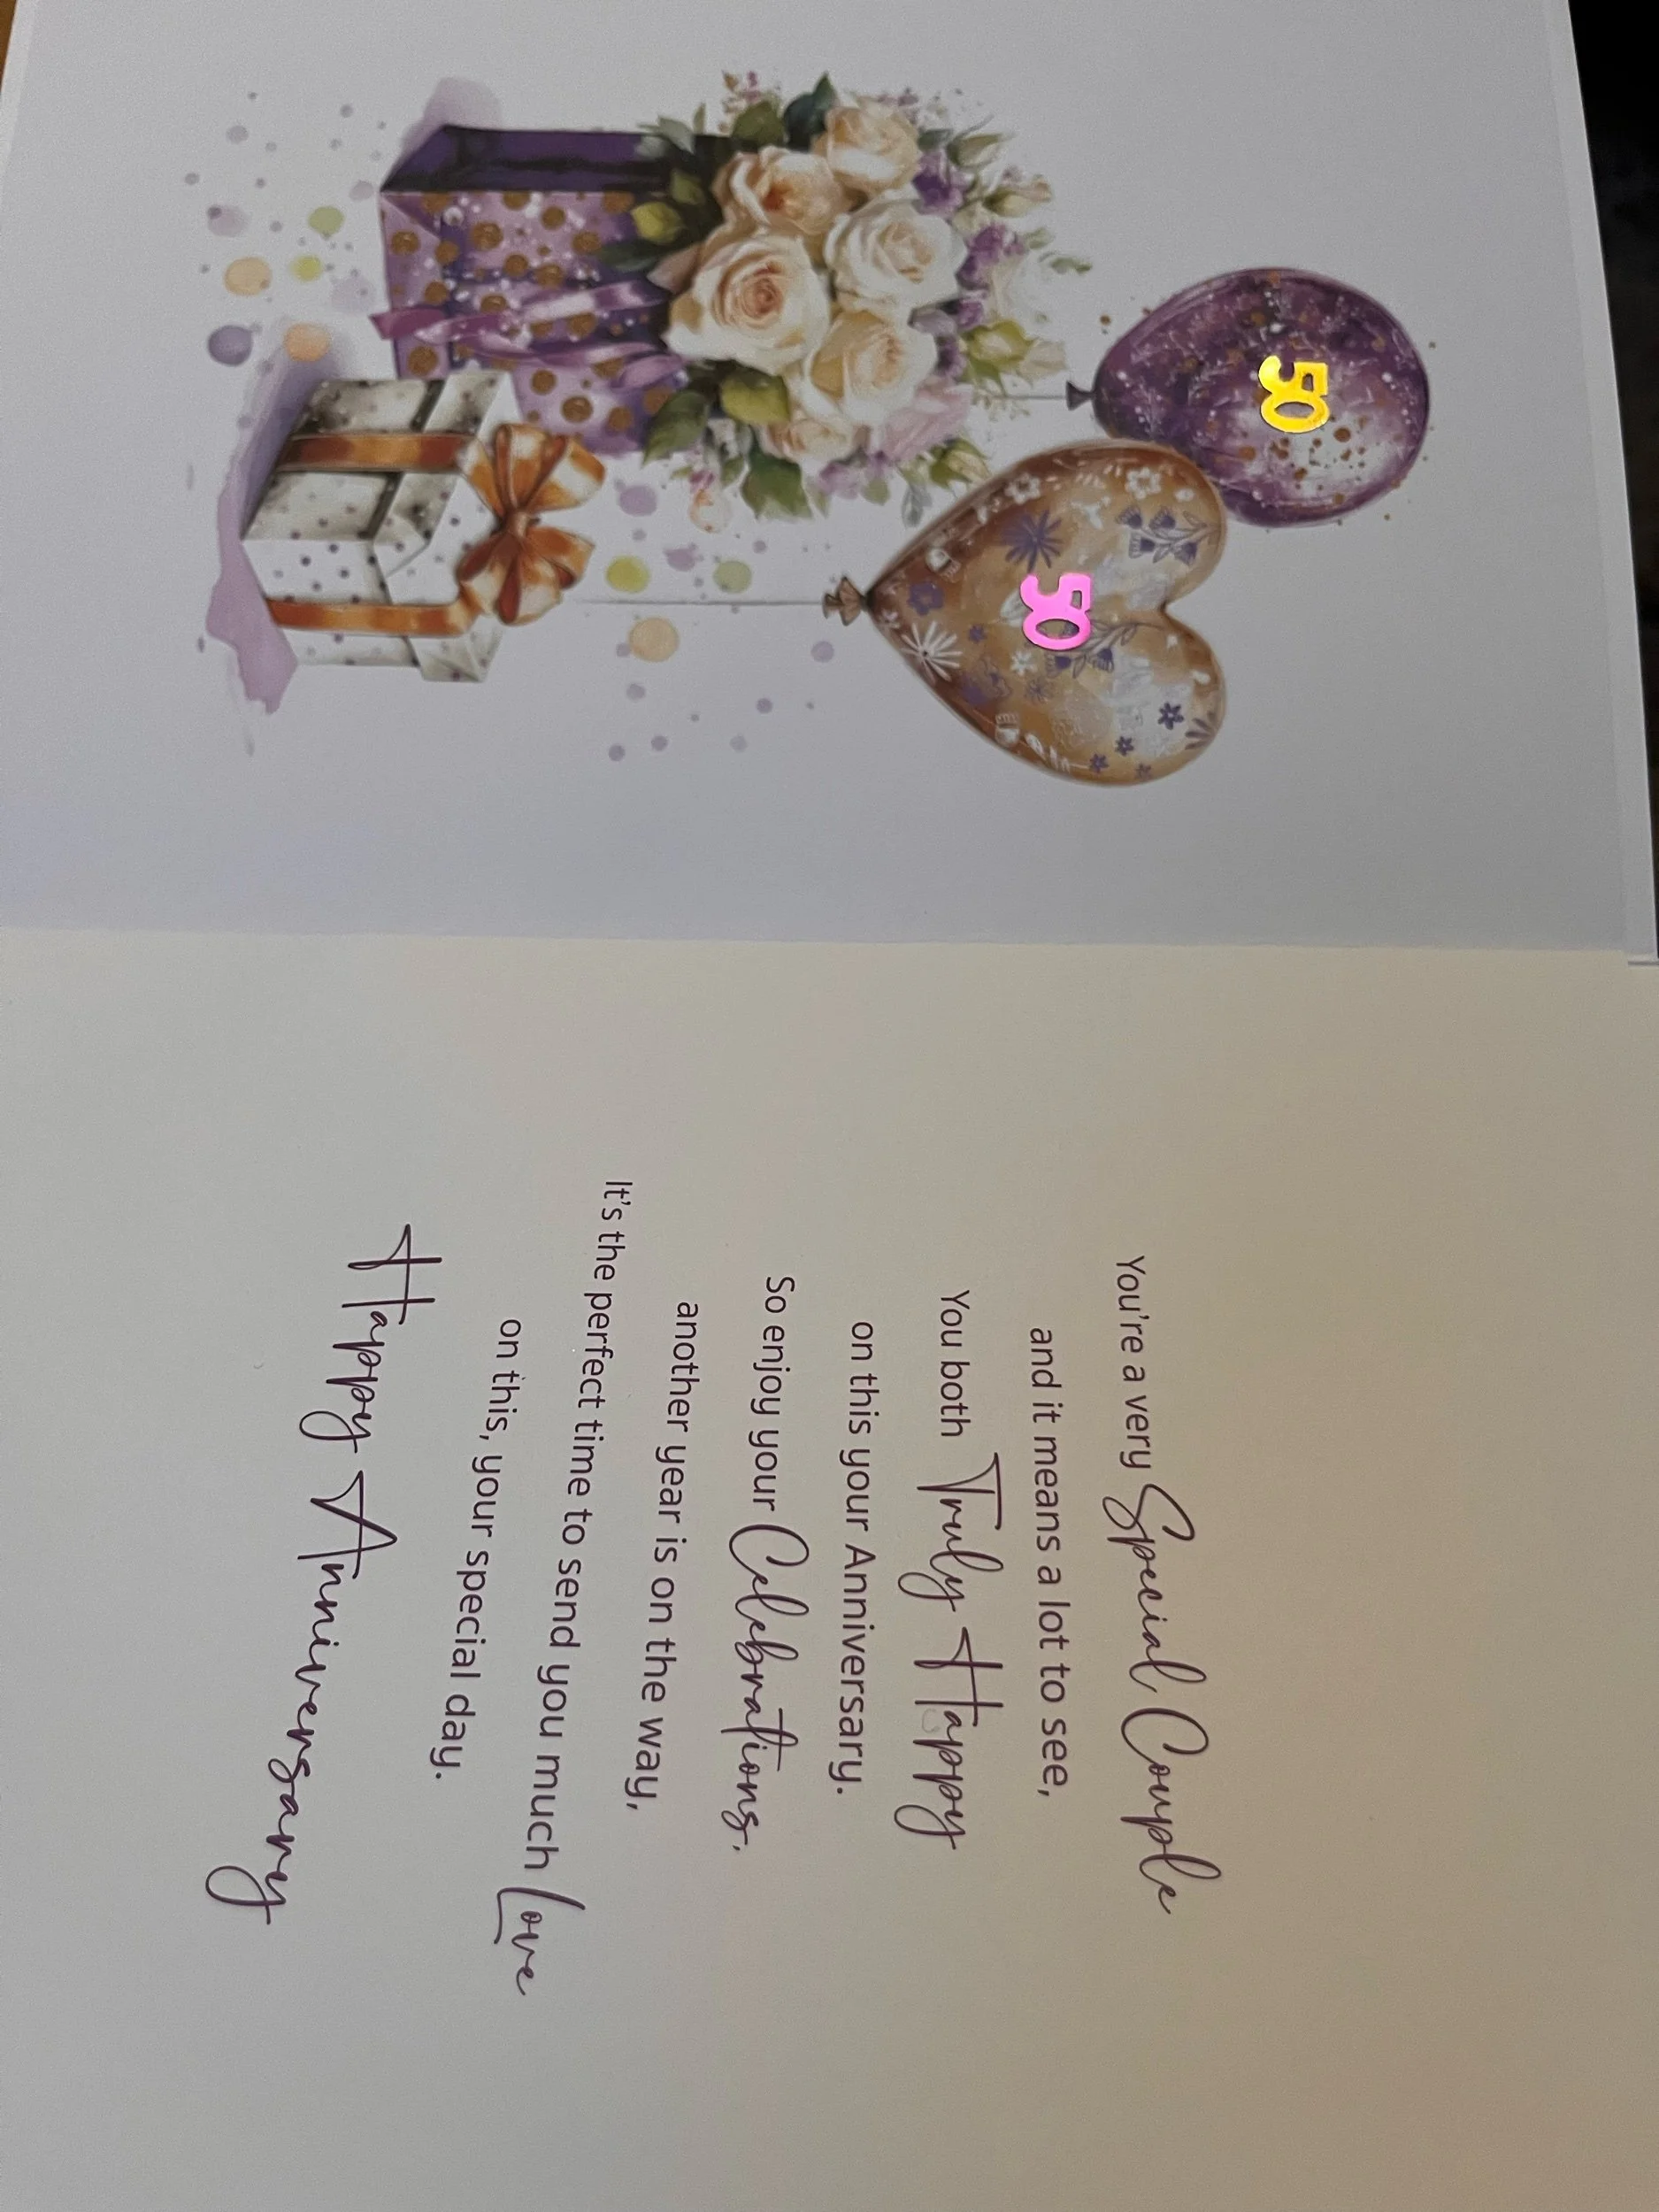 50
50
You're a very Special Couple
and it means a lot to see,
You both Truly Happy
on this your Anniversary.
So enjoy your Celebrations,
another year is on the way,
It's the perfect time to send you much Love
on this, your special day.
Happy Anniversary